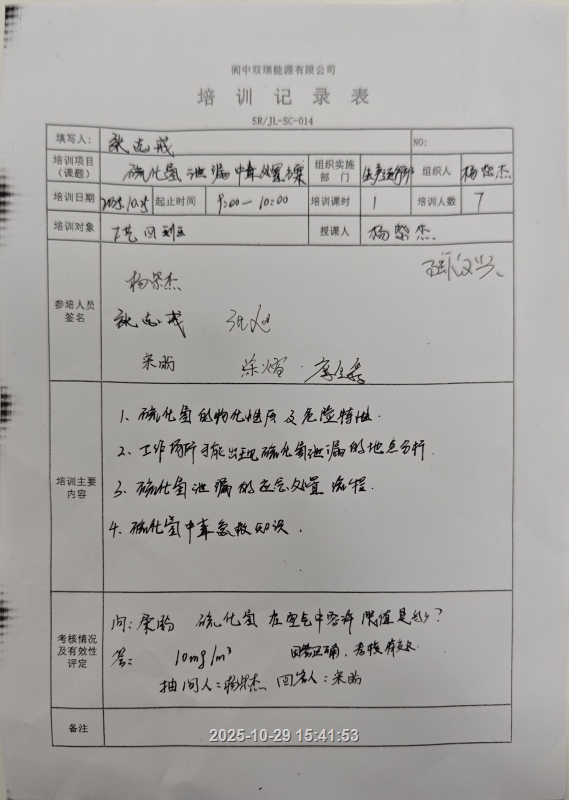 阆中双瑞能源有限公司
培 训 记 录 表
SR/JL-SC-014
填写人: NO:
培训项目(课题) 硫化氢泄漏中毒处置 组织实施部门 生产运行部 组织人 杨紫杰
培训日期 2025.10.25 起止时间 9:00—10:00 培训课时 1 培训人数 7
培训对象 授课人 杨紫杰
参培人员签名
杨紫杰
培训主要内容
1、硫化氢的物化性质及危险特性.
2、工作场所可能出现硫化氢泄漏的地点分析.
3、硫化氢泄漏的应急处置流程.
4、硫化氢中毒急救知识.
考核情况及有效性评定
问: 硫化氢在空气中容许限值是多少?
答: 10mg/m³ 回答正确, 考核有效.
抽问人:杨紫杰 回答人:
备注
2025-10-29 15:41:53